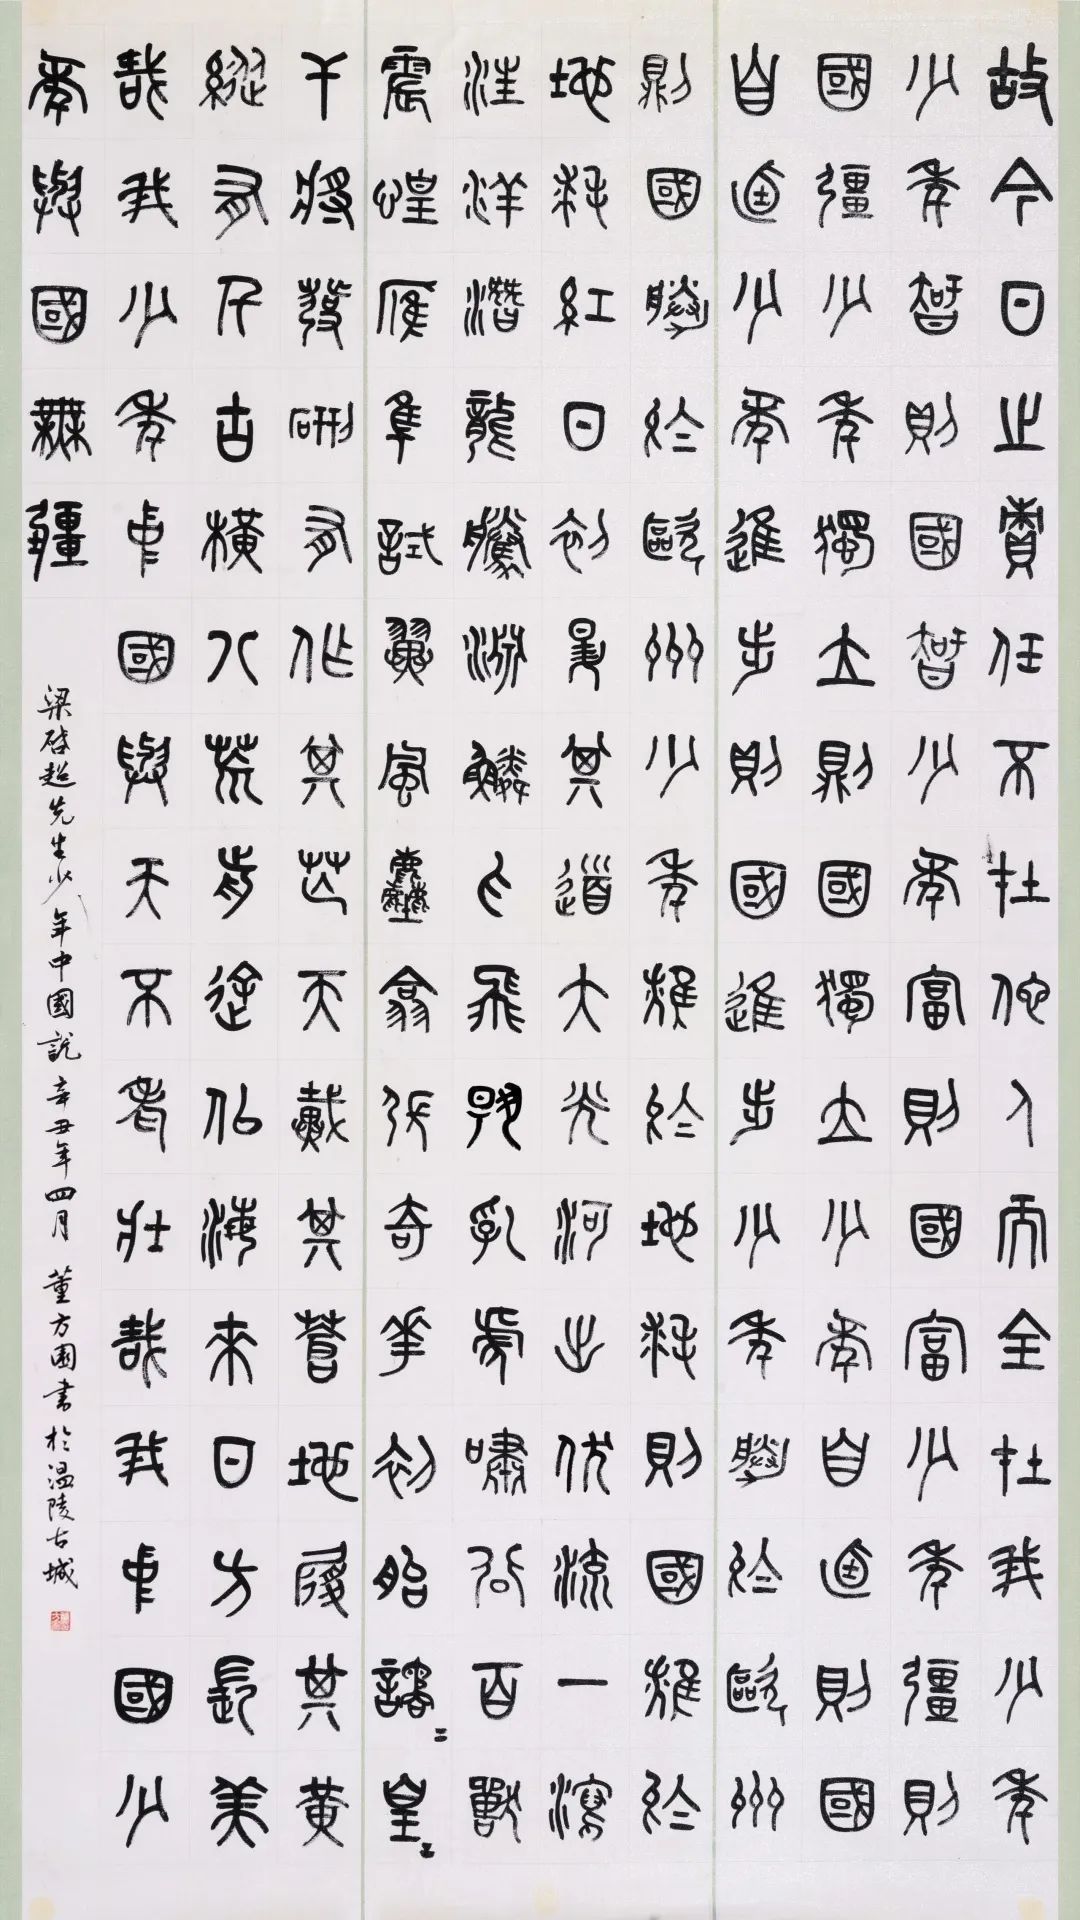 故今日之責任不在他人而全在我少年
少年智則國智少年富則國富少年彊則
國彊少年獨立則國獨立少年自由則國
自由少年進步則國進步少年勝於歐州
則國勝於歐州少年雄於地球則國雄於
地球紅日初昇其道大光河出伏流一瀉
汪洋潛龍騰淵鱗爪飛揚乳虎嘯谷百獸
震惶鷹隼試翼風塵翕張奇花初胎譎〻皇〻
干將發硎有作其芒天戴其蒼地履其黃
縱有千古橫八荒前途似海來日方長美
哉我少年中國與天不老壯哉我中國少
年與國無疆
梁啓超先生少年中國說 辛丑年四月 董方園書於溫陵古城